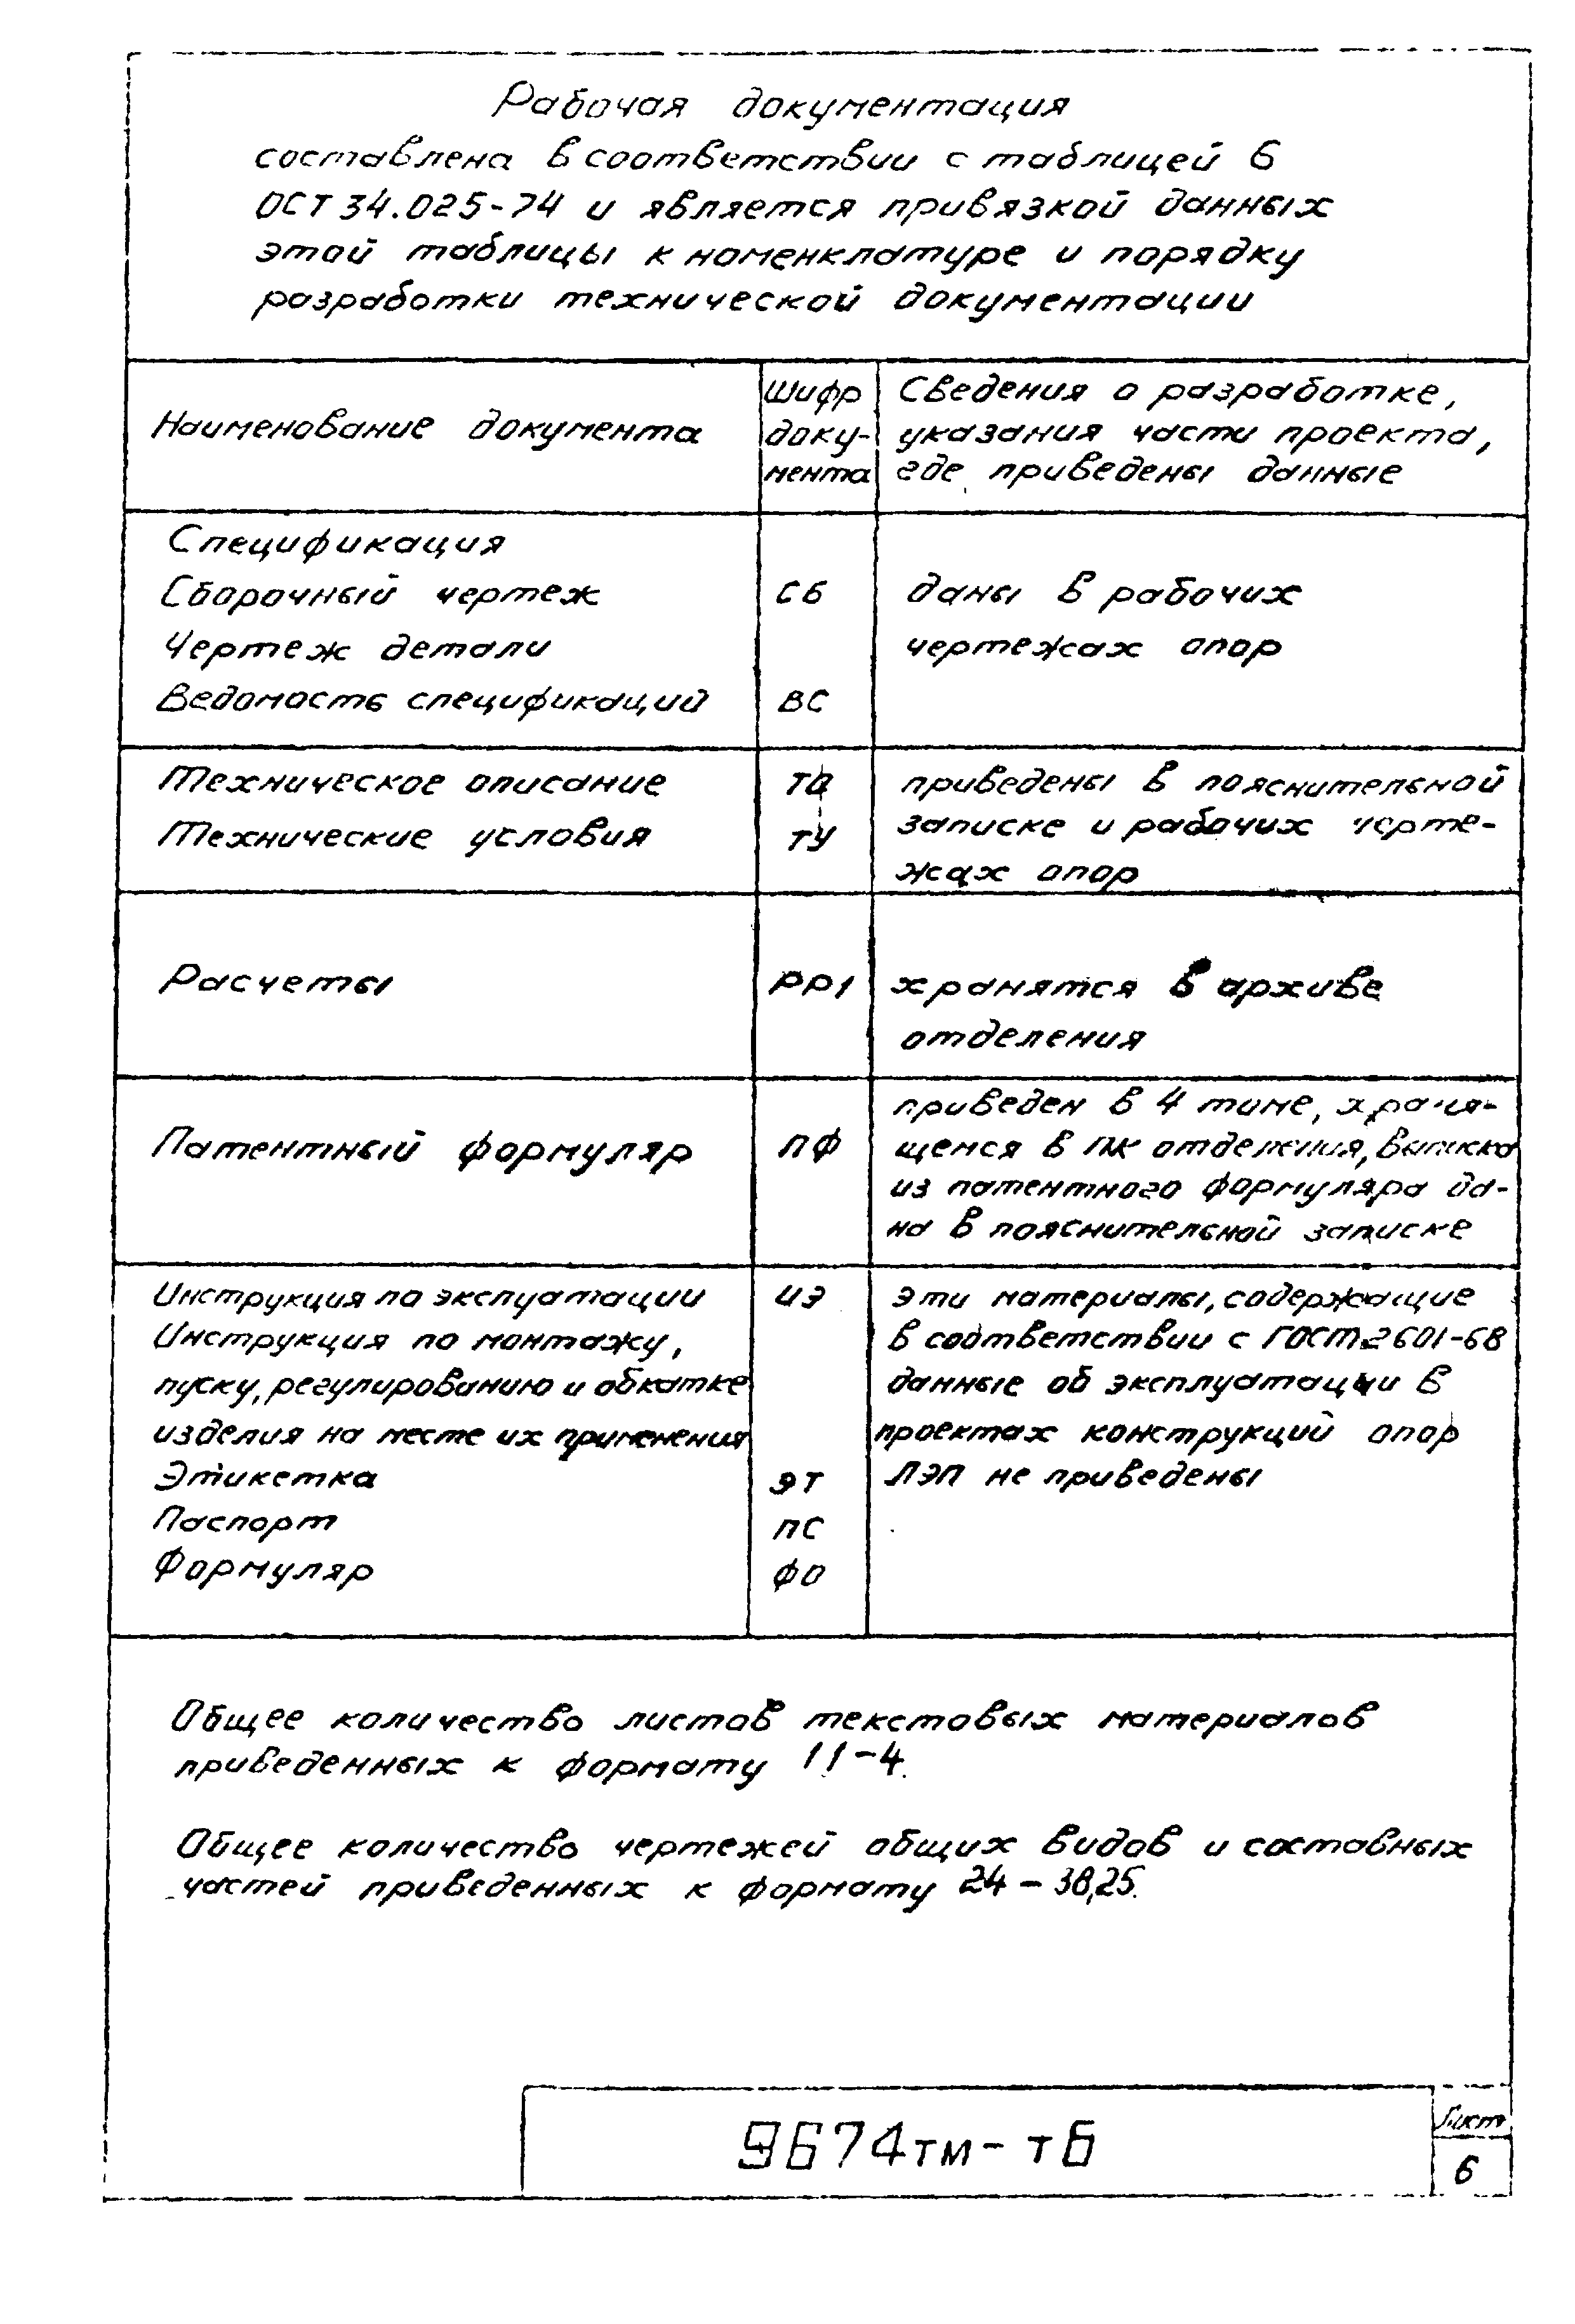 Рабочая документация
составлена в соответствии с таблицей 6
ОСТ 34.025-74 и является привязкой данных
этой таблицы к номенклатуре и порядку
разработки технической документации
Наименование документа
Шифр
доку-
мента
Сведения о разработке,
указания части проекта,
где приведены данные
Спецификация
Сборочный чертеж СБ
Чертеж детали
Ведомость спецификаций ВС
даны в рабочих
чертежах опор
Техническое описание ТО
Технические условия ТУ
приведены в пояснительной
записке и рабочих черте-
жах опор
Расчеты РР1
хранятся в архиве
отделения
Патентный формуляр ПФ
приведен в 4 томе, храня-
щемся в ПК отделения, выписка
из патентного формуляра да-
на в пояснительной записке
Инструкция по эксплуатации ИЭ
Инструкция по монтажу,
пуску, регулированию и обкатке
изделия на месте их применения
Этикетка ЭТ
Паспорт ПС
Формуляр ФО
эти материалы, содержащие
в соответствии с ГОСТ 2601-68
данные об эксплуатации в
проектах конструкций опор
ЛЭП не приведены
Общее количество листов текстовых материалов
приведенных к формату 11-4.
Общее количество чертежей общих видов и составных
частей приведенных к формату 24-38,25.
9674тм-т6
Лист
6